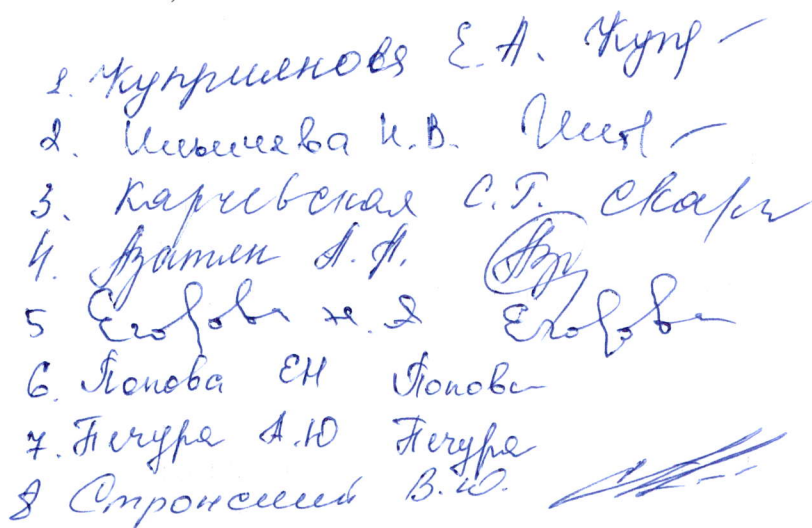 1. Куприянова Е.А. Купр
2. Ильичева И.В.
3. Карчевская С.Г. СКарч
4. Азатян А.А.
5 Егорова Н.Я Егорова
6. Попова ЕН Попова
7. Печура А.Ю Печура
8 Стронский В.Ю.